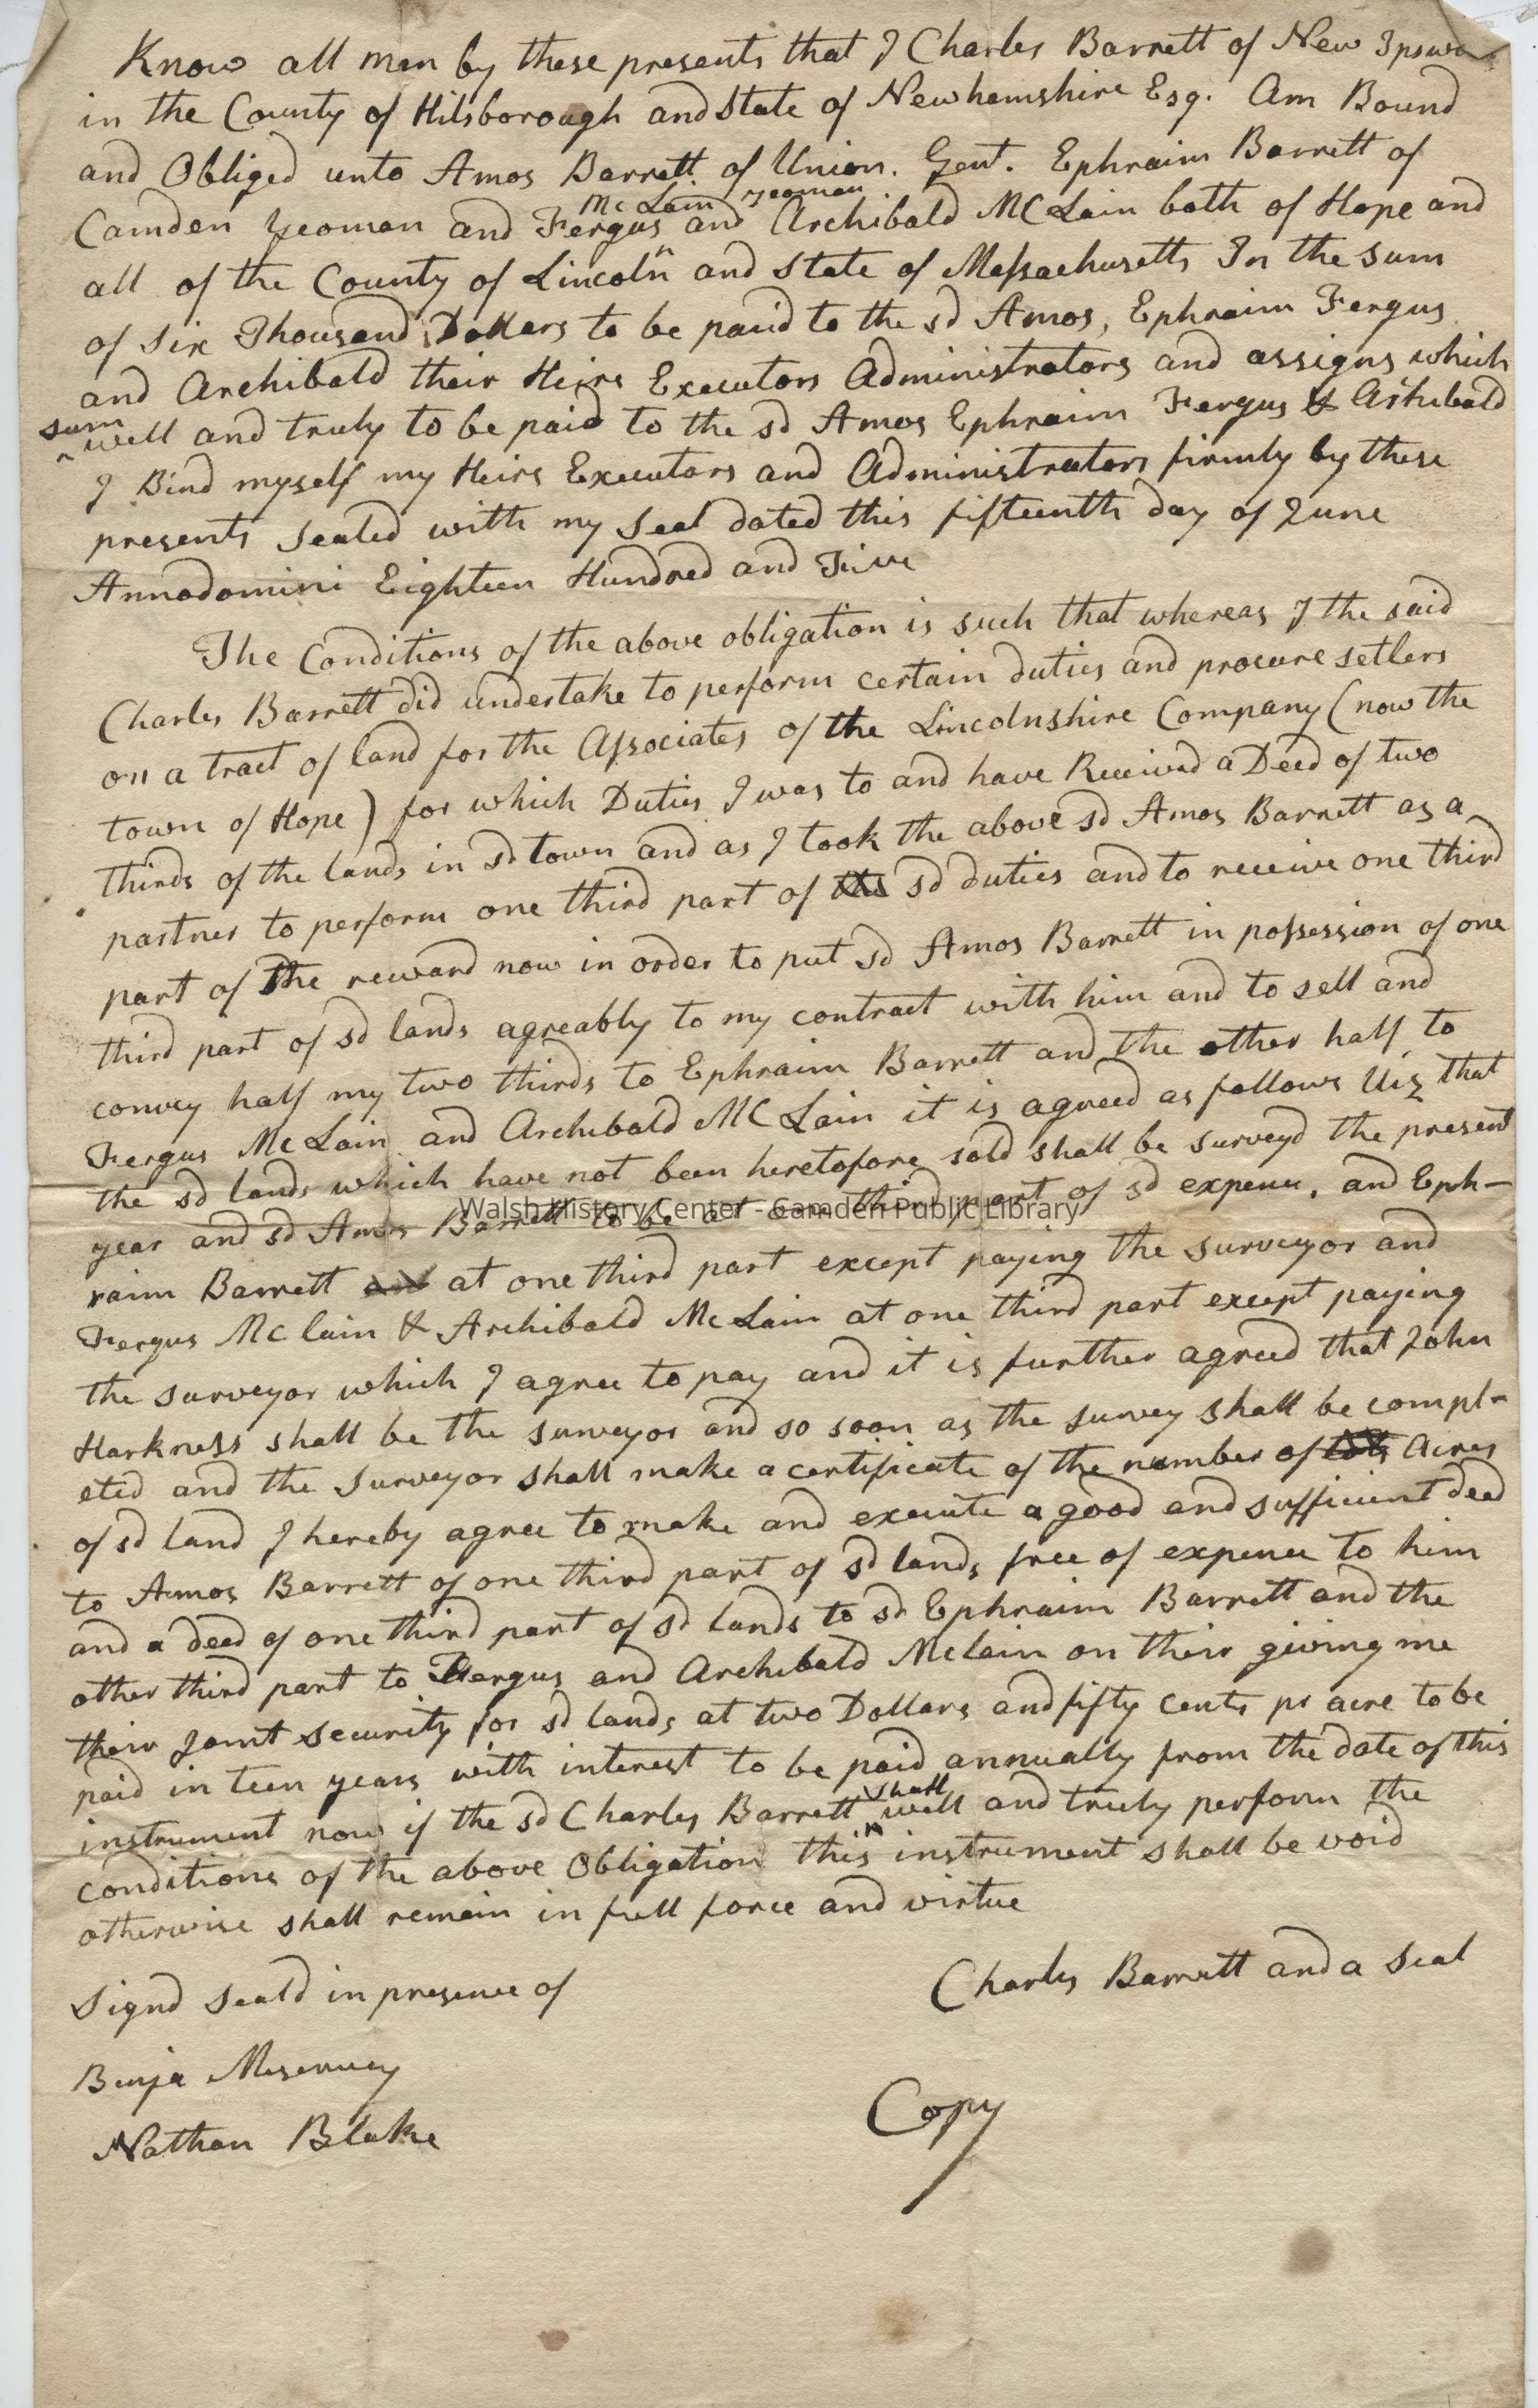 Know all men by these presents that I Charles Barrett of New Ipswi
in the County of Hilsborough and State of Newhemshire Esq. Am Bound
and Obliged unto Amos Barrett of Union. Gent. Ephraim Barrett of
Mc Lain yeoman
Camden yeoman and Fergus and Archibald McLain both of Hope and
all of the County of Lincoln and State of Massachusetts In the sum
of Six Thousand Dollers to be paid to the sd Amos, Ephraim Fergus
and Archibald their Heirs Executors Administrators and assigns which
sum
^ well and truly to be paid to the sd Amos Ephraim Fergus & Arhibald
I Bind myself my Heirs Executors and Administrators firmly by these
presents Sealed with my Seal dated this fifteenth day of June
Annodomini Eighteen Hundred and Five
The Conditions of the above obligation is such that whereas I the said
Charles Barrett did undertake to perform certain duties and procure setlers
on a tract of land for the Associates of the Lincolnshire Company (now the
town of Hope) for which Duties I was to and have Received a Deed of two
thirds of the lands in sd town and as I took the above sd Amos Barrett as a
partner to perform one third part of the sd duties and to receive one third
part of the reward now in order to put sd Amos Barrett in possession of one
third part of sd lands agreably to my contract with him and to sell and
convey half my two thirds to Ephraim Barrett and the other half to
Fergus McLain and Archibald McLain it is agreed as follows Viz that
the sd lands which have not been heretofore sold shall be surveyd the present
year and sd Amos Barrett to be at one third part of sd expence. and Eph-
raim Barrett at one third part except paying the surveyor and
Fergus Mclain & Archibald McLain at one third part except paying
the surveyor which I agree to pay and it is further agreed that John
Harkness shall be the surveyor and so soon as the survey shall be compl-
eted and the surveyor shall make a certificate of the number of lots Acres
of sd land I hereby agree to make and execute a good and sufficient deed
to Amos Barrett of one third part of sd lands free of expence to him
and a deed of one third part of sd lands to sd Ephraim Barrett and the
other third part to Fergus and Archibald Mclain on their giving me
their Joint security for sd lands at two Dollars and fifty cents pr acre to be
paid in teen years with interest to be paid annually from the date of this
shall
instrument now if the sd Charles Barrett ^ well and truly perform the
conditions of the above Obligation this instrument shall be void
otherwise shall remain in full force and virtue
Signd Seald in presence of
Charles Barrett and a Seal
Benja Meservey
Nathan Blake
Copy
Walsh History Center - Camden Public Library